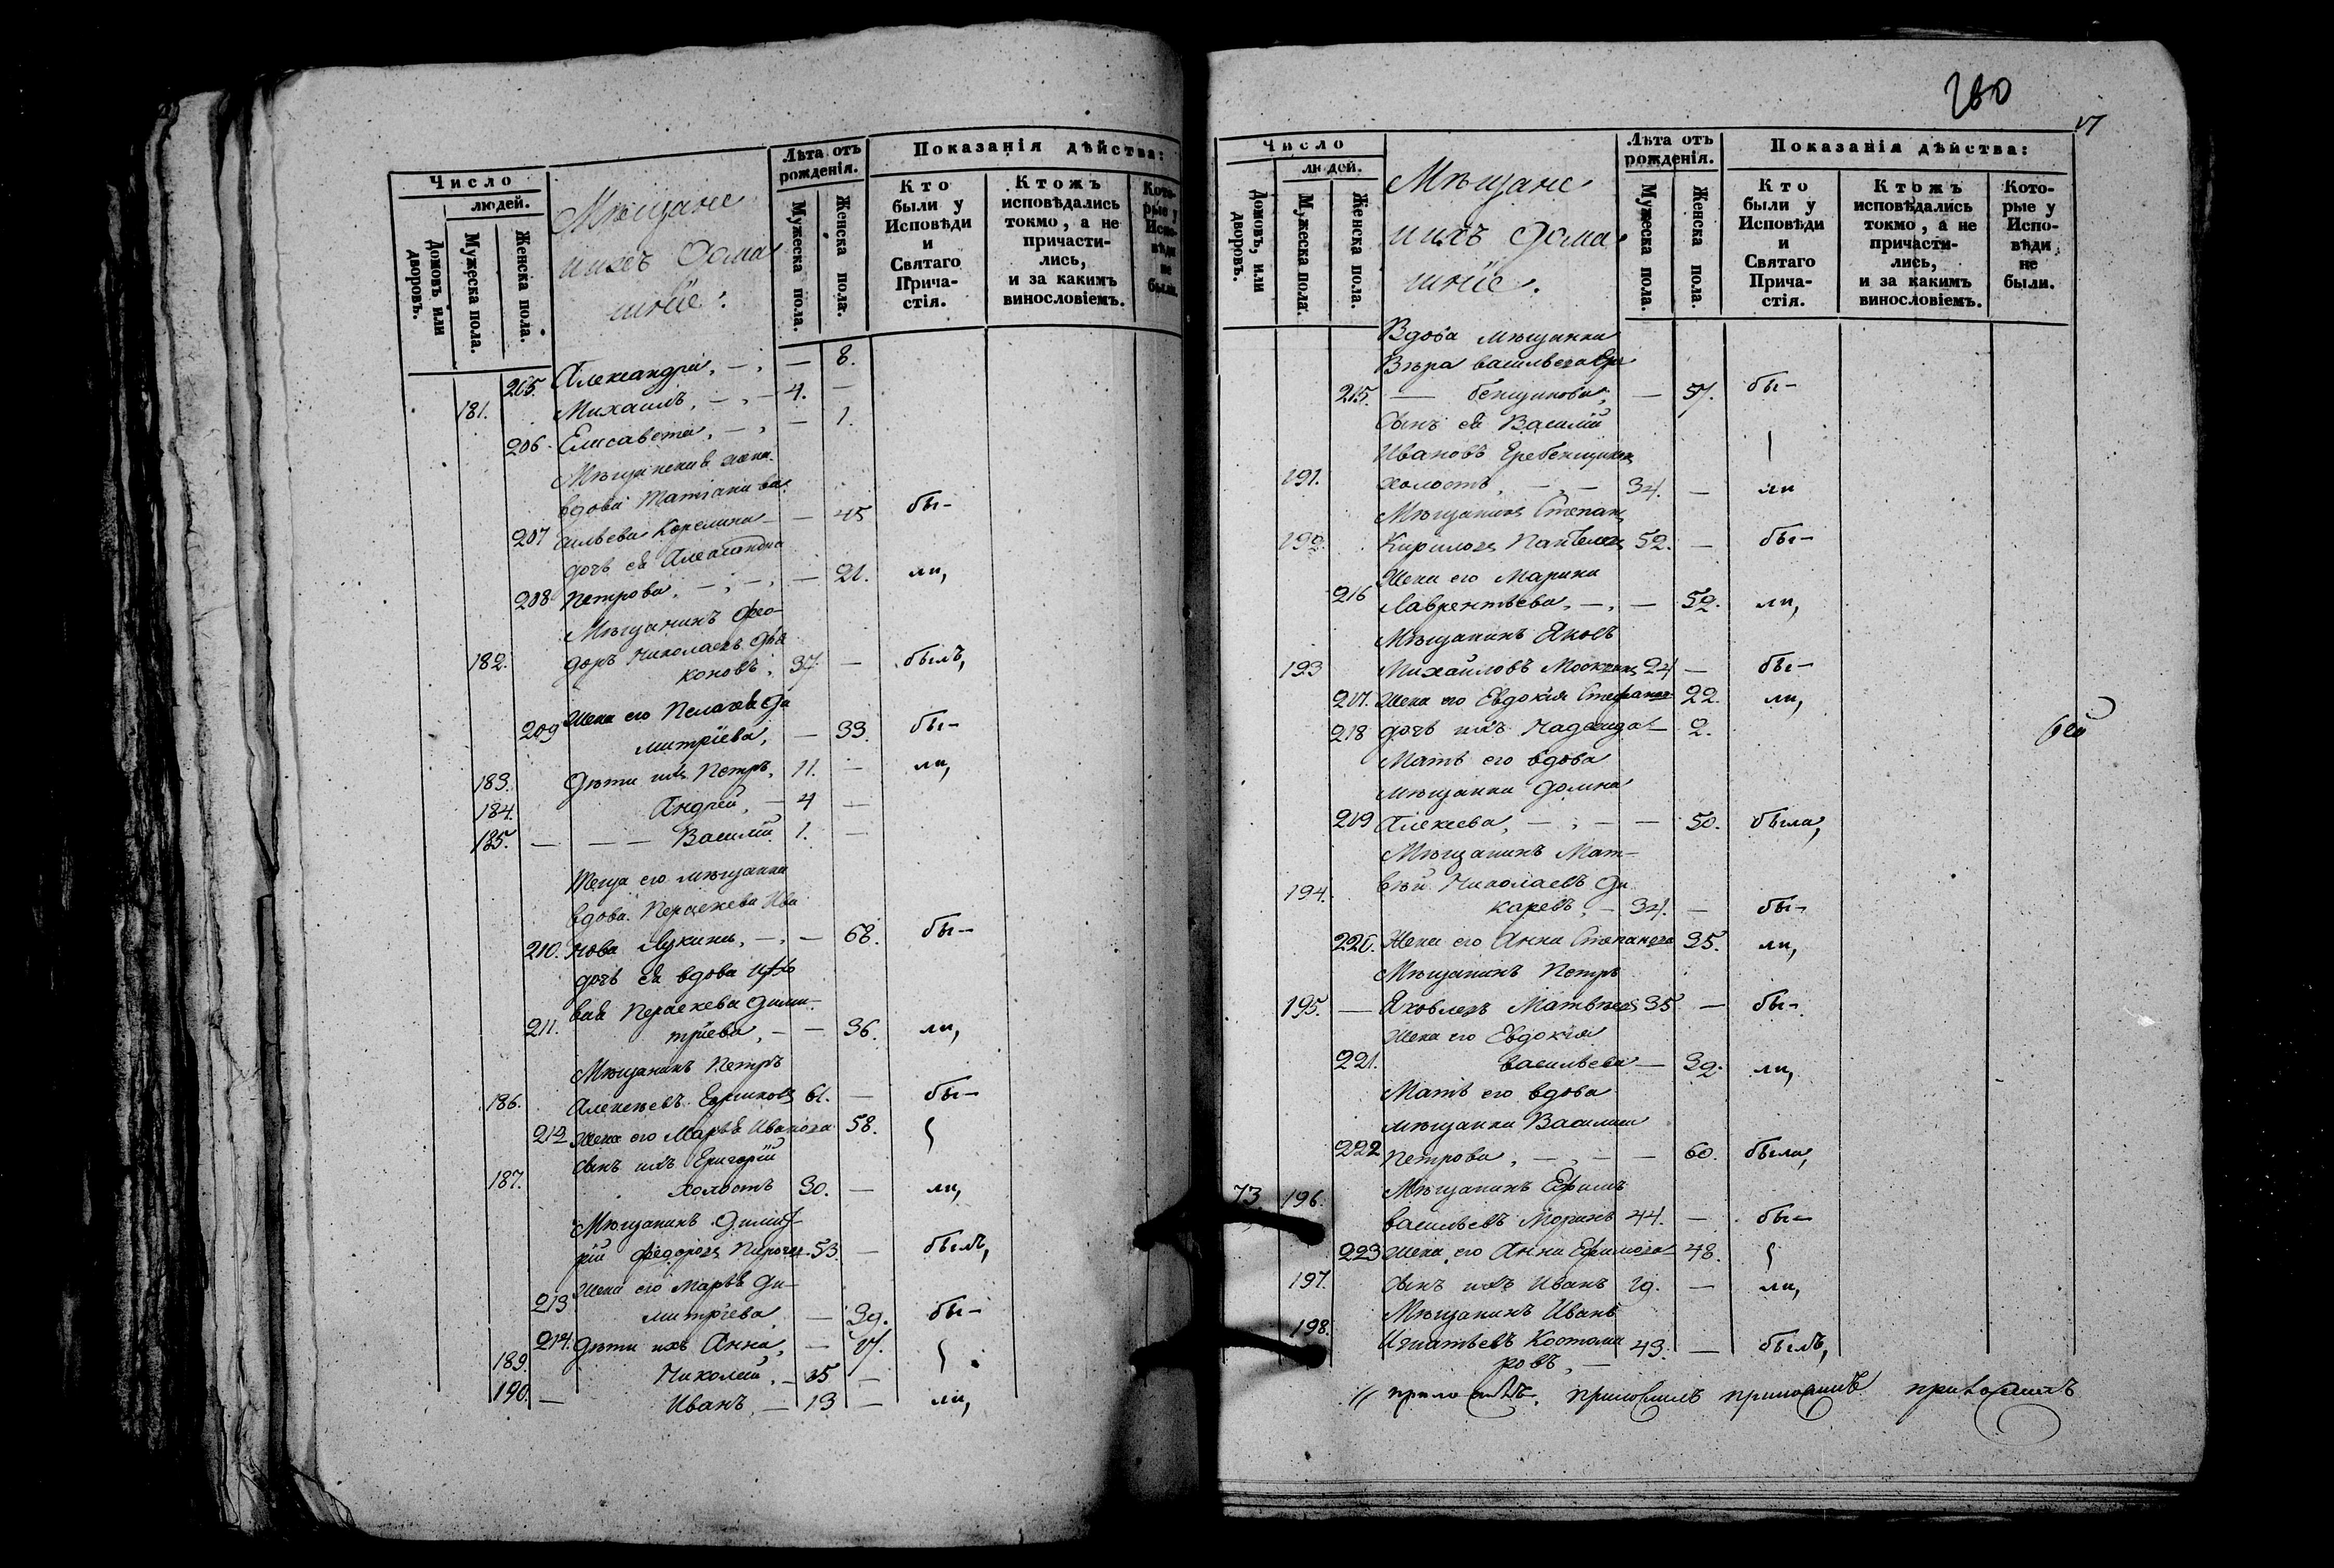 Число
людей.
Домовъ или дворовъ.
Мужеска пола.
Женска пола.
Мѣщане
и ихъ дома
шніе.
Лѣта отъ рожденія.
Мужеска пола.
Женска пола.
Показанія дѣйства:
Кто были у Исповѣди и Святаго Прича- стія.
Ктожъ исповѣдались токмо, а не причасти- лись, и за какимъ винословіемъ.
Кото- рые у Испо- вѣди не были.
205. Александра, — 8.
181. Михаилъ, — 4. —
206. Елисавета, — 1.
Мѣщанская жена
вдова Татіана Ва
207 сильева Корелина — 45 бы-
дочь ея Александра
208 Петрова, — 21. ли,
Мѣщанинъ Фео-
182. доръ Николаевъ Дья
коновъ, 37. — былъ,
Жена его Пелагея Ди
209 митріева, — 33. бы-
183. Дѣти ихъ Петръ, 11. — ли,
184. Андрей, — 4 —
185. — Василій 1. —
Теща его мѣщанка
вдова Параскева Ива
210. нова Лукина, — 68. бы-
дочь ея вдова
Параскева Дими-
211. тріева, — 36. ли,
Мѣщанинъ Петръ
186. Алексѣевъ 61. — бы-
212 Жена его Марѳа Иванова 58.
сынъ ихъ Григорій
187. холостъ 30. — ли,
Мѣщанинъ Димит-
рій Федоровъ 53. — былъ,
Жена его Марѳа Ди-
213 митріева, — 39. бы-
214. Дѣти ихъ Анна, — 17.
189. Николай, — 15 —
190. — Иванъ, — 13 — ли,
280
17
Число
людей.
Домовъ, или дворовъ.
Мужеска пола.
Женска пола.
Мѣщане
и ихъ дома
шніе.
Лѣта отъ рожденія.
Мужеска пола.
Женска пола.
Показанія дѣйства:
Кто были у Исповѣди и Святаго Прича- стія.
Ктожъ исповѣдались токмо, а не причасти- лись, и за какимъ винословіемъ.
Кото- рые у Испо- вѣди не были.
Вдова мѣщанка
Вѣра Васильева Гре
215. — бенщикова, — 57. бы-
Сынъ ея Василій
Ивановъ Гребенщиковъ
191. холостъ, — 34. — ли
Мѣщанинъ Степанъ
192. Кириловъ 52. — бы-
Жена его Марина
216 Лаврентьева, — 52. ли,
Мѣщанинъ Яковъ
193 Михайловъ 24 — бы-
217. Жена его Евдокія Стефанова 22. ли,
218 дочь ихъ Надежда — 2.
Мать его вдова
мѣщанка Домна
219 Алексѣева, — 50. была,
Мѣщанинъ Мат-
194. вѣй Николаевъ Ди
каревъ, — 34. — бы-
220. Жена его Анна Степанова 35. ли,
Мѣщанинъ Петръ
195. — Яковлевъ Матвѣевъ 35 — бы-
Жена его Евдокія
221. Васильева — 32. ли,
Мать его вдова
мѣщанка Василиса
222 Петрова, — 60. была,
73 196. Мѣщанинъ Ефимъ
Васильевъ 44. — бы-
223 Жена его Анна Ефимова 48.
197. сынъ ихъ Иванъ 19. — ли,
Мѣщанинъ Иванъ
198. Игнатьевъ Костома
ровъ, — 43. — былъ,